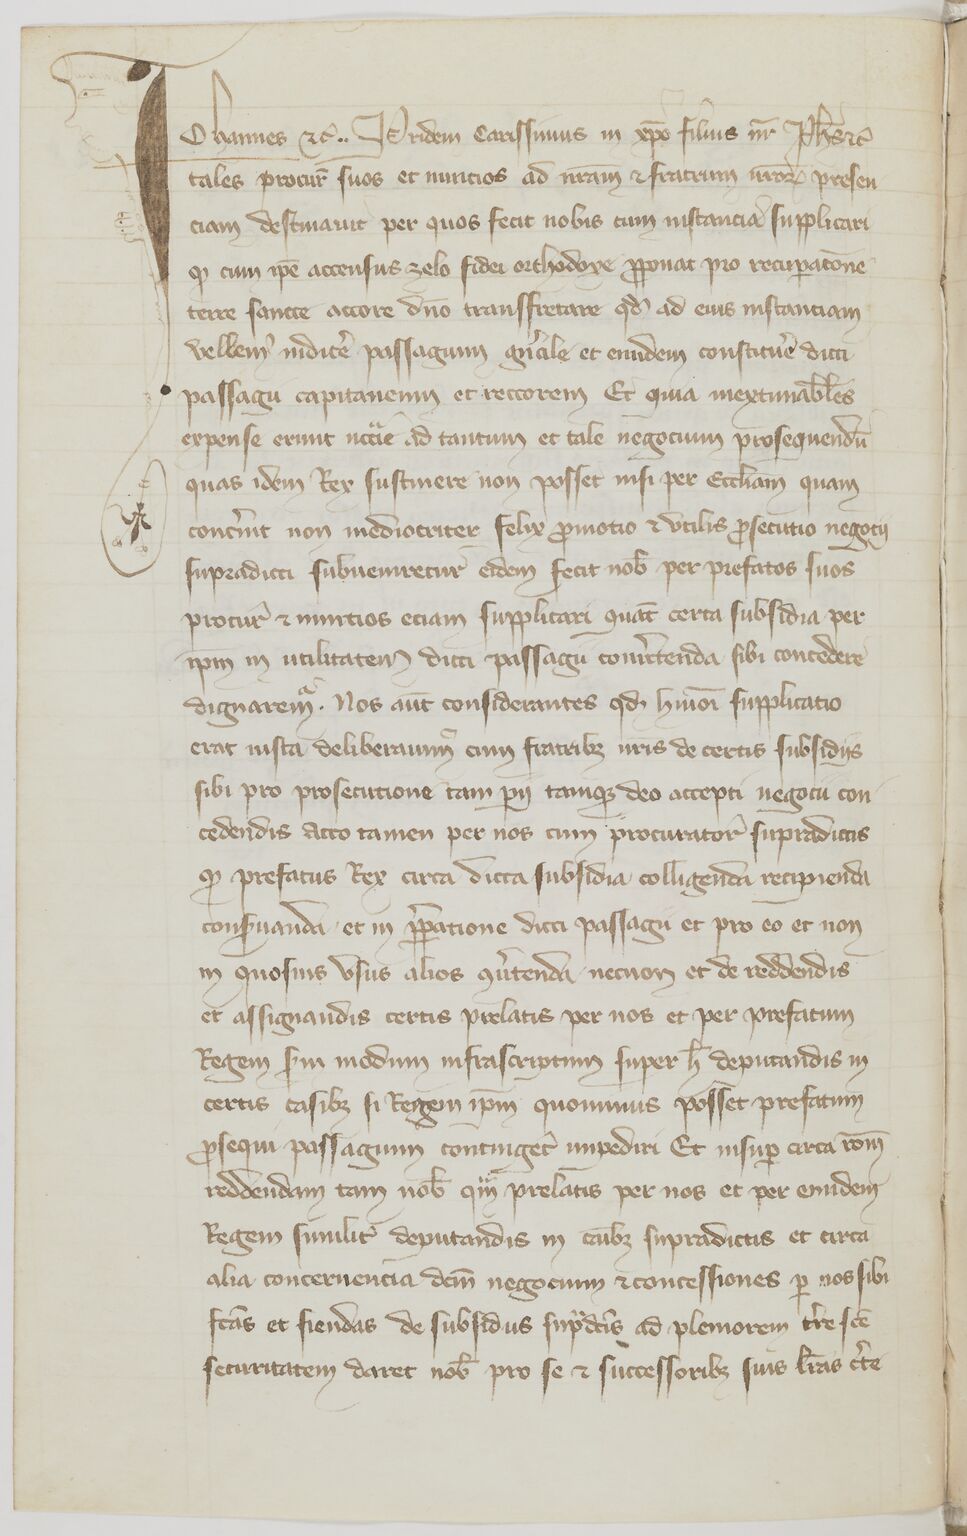 Johannes etc̃ .. Pridem Carissimus in xp̃o filius nr̃ Ph̃s etc̃
tales procur̃ suos et nuncios ad nr̃am & fratrum nr̃oꝝ presen
ciam destinavit per quos fecit nobis cum instancia supplicari
qđ cum ip̃e accensus zelo fidei orthodoxe ꝓponat pro recuperatõne
terre sancte auctore dño transfretare qđ ad eius instanciam
vellem᷒ indicẽ passagium gñale et eundem constituẽ dicti
passagii capitaneum et rectorem Et quia inextimabˀles
expense erunt ncc̃ie ad tantum et tale negocium prosequendũ
quas idem Rex sustinere non posset nisi per Eccliam quam
concñit non mediocriter felix ꝓmotio & utilis ꝓsecutio negocij
supradicti subueniretur eidem fecit nob̃ per prefatos suos
procur̃ & nuntios eciam supplicari quat̃ certa subsidia per
ip̃m in utilitatem dicti passagii conũtenda sibi concedere
dignarem᷒ . Nos aũt considerantes qđ hmõi supplicatio
erat iusta deliberauim᷒ cum fratribꝫ nr̃is de certis subsidijs
sibi pro prosecutione tam pij tamqꝫ deo accepti negocii con
cedendis Acto tamen per nos cum procurator̃ supradictis
qđ prefatus Rex circa dicta subsidia colligenda recipienda
conſuanda et in p̃patione dicti passagii et pro eo et non
in quosuis usus alios ꝯũtenda necnon et de reddendis
et assignandis certis prelatis per nos et per prefatum
Regem sm̃ modum infrascriptum super h̃ deputandis in
certis casibꝫ si Regem ip̃m quominus posset prefatum
ꝓsequi passagium contingẽt impediri Et insuꝑ circa rõm
reddendam tam nob̃ qm̃ prelatis per nos et per eundem
Regem similit̃ deputandis in casibꝫ supradictis et circa
alia concernencia dc̃m negocium & concessiones ꝑ nos sibi
fc̃as et fiendas de subsidiis sup̃dc̃is ad pleniorem tr̃re sc̃e
securitatem daret nob̃ pro se & successoribꝫ suis lr̃as cr̃te